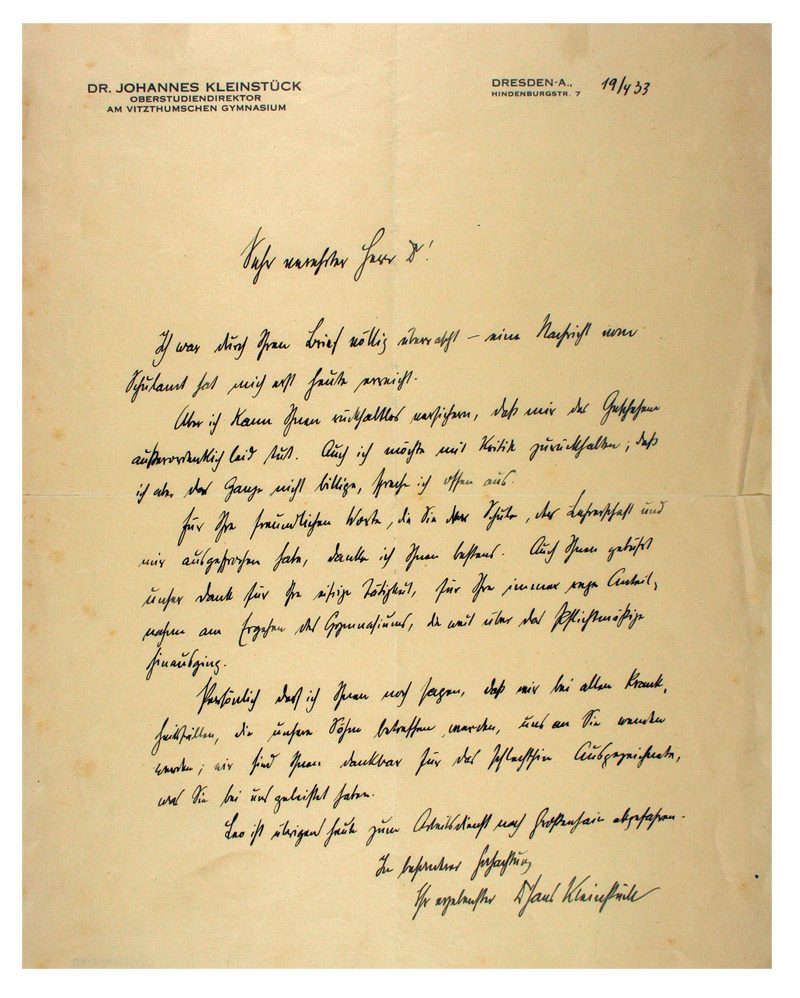 DR. JOHANNES KLEINSTÜCK
OBERSTUDIENDIREKTOR
AM VITZTHUMSCHEN GYMNASIUM
DRESDEN-A., 19/4 33
HINDENBURGSTR. 7
Sehr verehrter Herr Dr!
Ich war durch Ihren Brief völlig überrascht – eine Nachricht vom
Schulamt hat mich erst heute erreicht.
Aber ich kann Ihnen rückhaltlos versichern, daß mir das Geschehene
außerordentlich leid tut. Auch ich möchte mit Kritik zurückhalten; daß
ich aber das Ganze nicht billige, spreche ich offen aus.
Für Ihre freundlichen Worte, die Sie der Schule, der Lehrerschaft und
mir ausgesprochen habe, danke ich Ihnen bestens. Auch Ihnen gebührt
unser Dank für Ihre eifrige Tätigkeit, für Ihre immer rege Anteil-
nahme am Ergehen des Gymnasiums, die weit über das Pflichtmäßige
hinausging.
Persönlich darf ich Ihnen noch sagen, daß wir bei allen Krank-
heitsfällen, die unsere Söhne betreffen werden, uns an Sie wenden
werden; wir sind Ihnen dankbar für das schlechthin Ausgezeichnete,
was Sie bei uns geleistet haben.
Leo ist übrigens heute zum Arbeitsdienst nach Großenhain abgefahren.
In besonderer Hochachtung
Ihr ergebenster Dr Hans Kleinstück